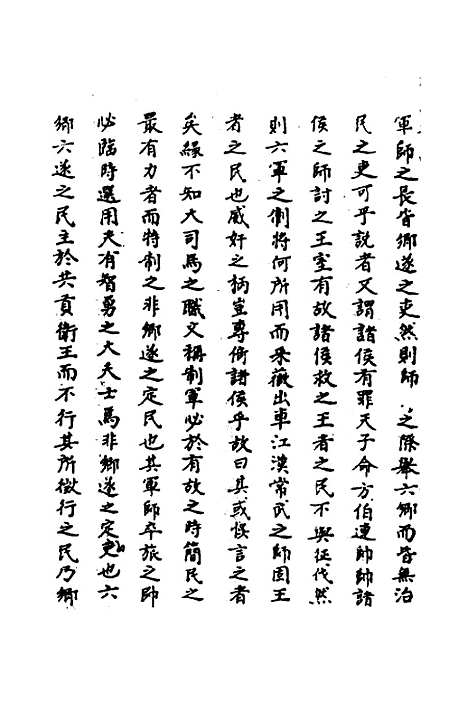 軍師之長皆鄉遂之吏然則師之際舉六鄉而皆無治
民之吏可乎說者又謂諸侯有罪天子命方伯連帥帥諸
侯之師討之王室有故諸侯救之王者之民不與征伐然
則六軍之制將何所用而采薇出車江漢常武之師固王
者之民也威奸之柄豈專倚諸侯乎故曰其或悞言之者
矣緣不知大司馬之職文稱制軍必於有故之時簡民之
最有力者而特制之非鄉遂之定民也其軍師卒旅之帥
必臨時選用夫有智勇之大夫士焉非鄉遂之定吏也六
鄉六遂之民主於共貢衛王而不行其所徵行之民乃鄉